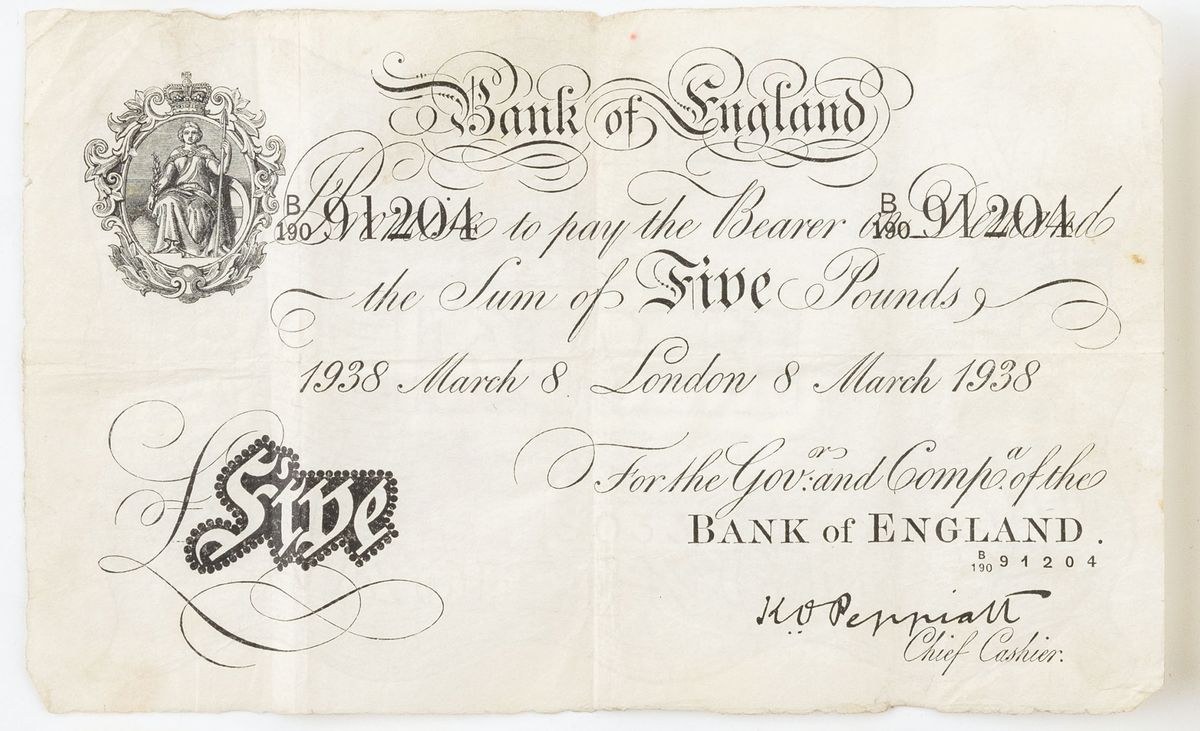 Bank of England
I Promise to pay the Bearer on Demand
B
190 91204
B
190 91204
the Sum of Five Pounds
1938 March 8. London 8 March 1938
£Five
For the Gov.r and Comp.a of the
BANK of ENGLAND.
B
190 91204
K O Peppiatt
Chief Cashier.